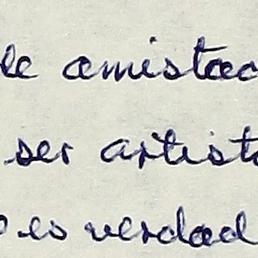 de amistad
ser artista
es verdad